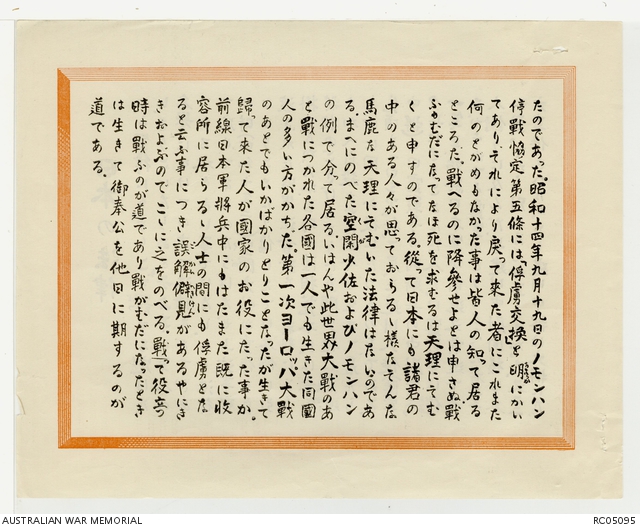 たのであった。昭和十四年九月十九日のノモンハン
停戰協定第五條には「俘虜交換」を明にかい
てあり、それにより戾って來た者にこれまた
何のとがめもなかった事は皆人の知って居る
ところだ。戰へるのに降參せよとは申さぬ戰
ふもむだになってなほ死を求むるは天理にそむ
くと申すのである。從って日本にも諸君の
中のある人々が思っておらるゝ樣なそんな
馬鹿な天理にそむいた法律はないのであ
る。まへにのべた空閑少佐およびノモンハン
の例で分って居る。いはんや此世界大戰のあ
と戰につかれた各國は一人でも生きた同國
人の多い方がかちだ。第一次ヨーロッパ大戰
のあとでもいかばかりとりことなったが生きて
歸って來た人が國家のお役にたった事か。
前線日本軍將兵中にもはたまた既に收
容所に居らるゝ人士の間にも俘虜とな
ると云ふ事につき誤解僻見があるやにき
きおよぶのでこゝに之をのべる。戰って役立つ
時は戰ふのが道であり戰がむだになったとき
は生きて御奉公を他日に期するのが
道である。
AUSTRALIAN WAR MEMORIAL
RC05095